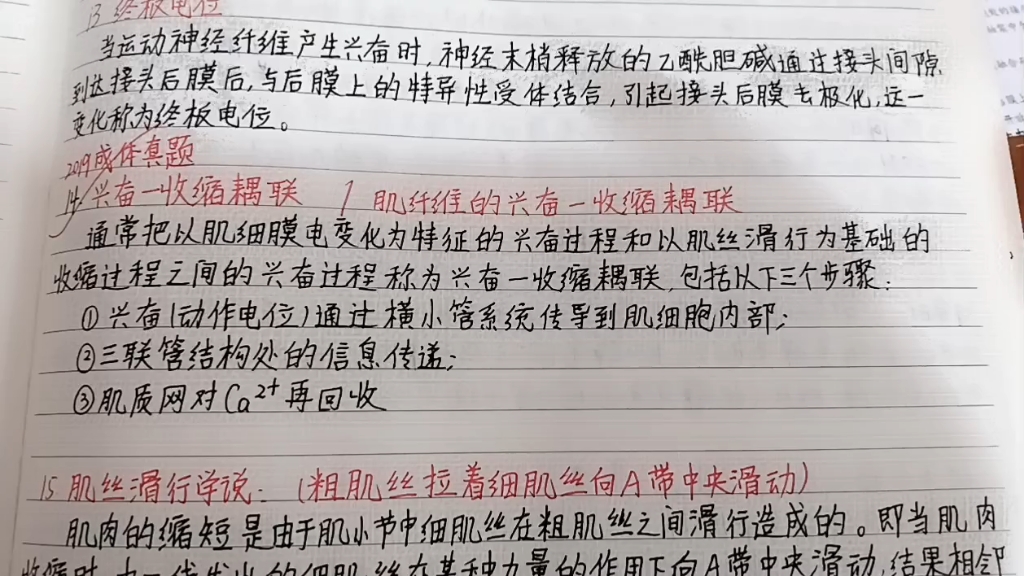 13 终板电位
当运动神经纤维产生兴奋时,神经末梢释放的乙酰胆碱通过接头间隙
到达接头后膜后,与后膜上的特异性受体结合,引起接头后膜去极化,这一
变化称为终板电位。
2019成体真题
14 兴奋一收缩耦联 / 肌纤维的兴奋一收缩耦联
通常把以肌细膜电变化为特征的兴奋过程和以肌丝滑行为基础的
收缩过程之间的兴奋过程称为兴奋一收缩耦联,包括以下三个步骤:
①兴奋(动作电位)通过横小管系统传导到肌细胞内部;
②三联管结构处的信息传递;
③肌质网对Ca²⁺再回收
15 肌丝滑行学说:(粗肌丝拉着细肌丝向A带中央滑动)
肌肉的缩短是由于肌小节中细肌丝在粗肌丝之间滑行造成的。即当肌肉
收缩时,由Z线发出的细肌丝在某种力量的作用下向A带中央滑动,结果相邻